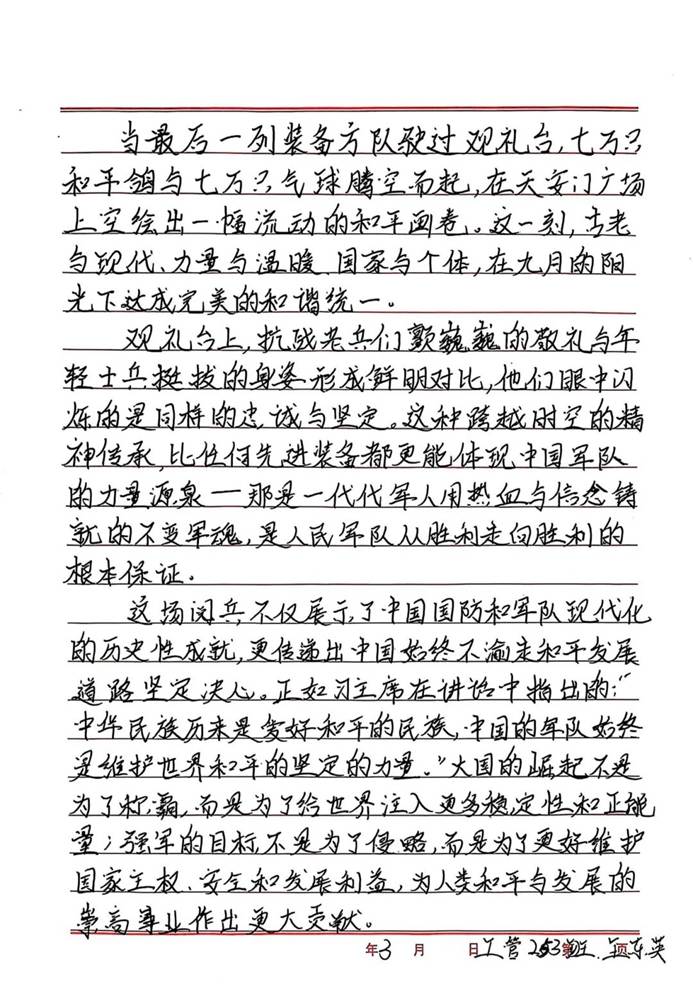 当最后一列装备方队驶过观礼台,七万只
和平鸽与七万只气球腾空而起,在天安门广场
上空绘出一幅流动的和平画卷。这一刻,古老
与现代、力量与温暖、国家与个体,在九月的阳
光下达成完美的和谐统一。
观礼台上,抗战老兵们颤巍巍的敬礼与年
轻士兵挺拔的身姿形成鲜明对比,他们眼中闪
烁的是同样的忠诚与坚定。这种跨越时空的精
神传承,比任何先进装备都更能体现中国军队
的力量源泉—那是一代代军人用热血与信念铸
就的不变军魂,是人民军队从胜利走向胜利的
根本保证.
这场阅兵不仅展示了中国国防和军队现代化
的历史性成就,更传递出中国始终不渝走和平发展
道路坚定决心。正如习主席在讲话中指出的:"
中华民族历来是爱好和平的民族,中国的军队始终
是维护世界和平的坚定的力量."大国的崛起不是
为了称霸,而是为了给世界注入更多稳定性和正能
量;强军的目标不是为了侵略,而是为了更好维护
国家主权、安全和发展利益,为人类和平与发展的
崇高事业作出更大贡献。
年3月 日工管253班 第 页 英